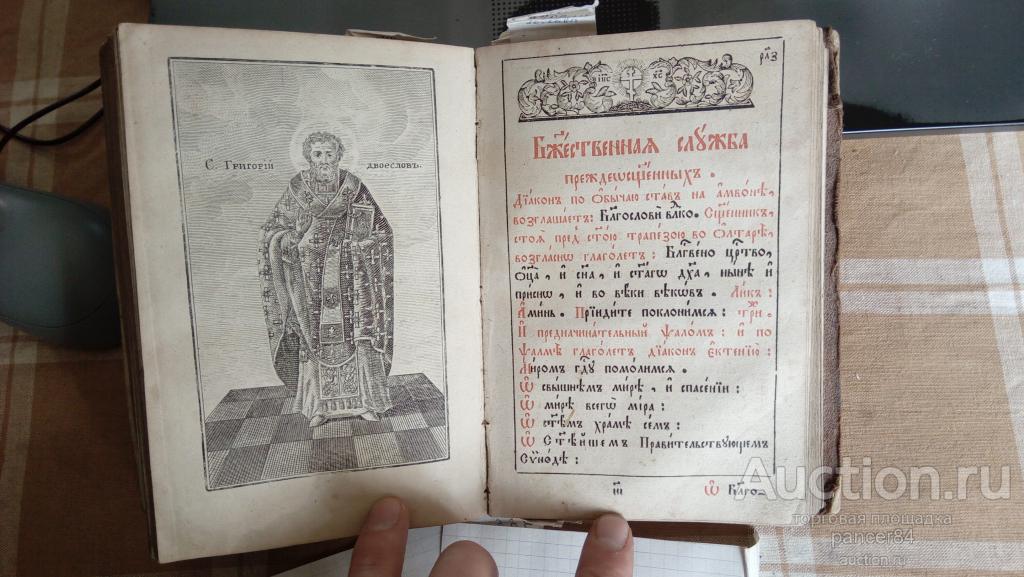 С. Григорій двоесловъ.
рл҃з
І҆И҃С Х҃С
Бж҃ественная слꙋжба
преждеѡсщ҃енныхъ .
Дїаконъ по ѻ҆бычаю ставъ на а҆мвонѣ,
возглашаетъ: Бл҃гослови̑ влⷣко. Сщ҃енникъ,
стоѧ̀ пред̾ ст҃ою трапезою во ѻ҆лтарѣ,
возгласнѡ глаголетъ: Бл҃гвено црⷭ҇тво,
Ѻ҆ц҃а, и҆ сн҃а, и҆ ст҃агѡ дх҃а, нынѣ и҆
приснѡ, и҆ во вѣки вѣкѡвъ . Ликъ:
А҆минь. Прїидите поклонимсѧ: три.
И҆ предначинательный ѱаломъ: и҆ по
ѱалмѣ глаголетъ дїаконъ є҆ктенїю:
Миромъ гдⷭ҇ꙋ помолимсѧ.
Ѡ҆ свышнѣмъ мирѣ, и҆ спасенїи:
Ѡ҆ мирѣ всегѡ мїра:
Ѡ҆ ст҃ѣмъ храмѣ семъ:
Ѡ҆ С̾тѣйшемъ Правительствꙋющемъ
Сѵнодѣ:
Ѡ҆ Бл҃го
Auction.ru
торговая площадка
pancer84
auction.ru